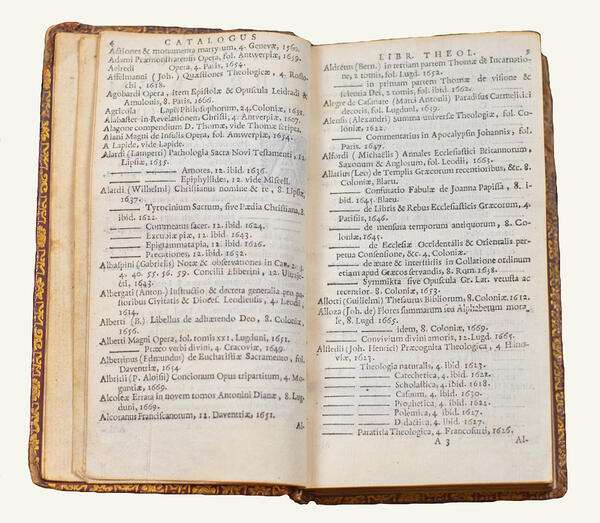 4 CATALOGUS
Actiones & monumenta martyrum, 4. Genevæ, 1560.
Adami Præmonstratensis Opera, fol. Antwerpiæ, 1659.
Aelredi Opera, 4. Paris, 1654.
Affelmanni (Joh.) Quæstiones Theologicæ, 4. Rostochi, 1618.
Agobardi Opera, item Epistolæ & Opuscula Leidradi &
Amulonis, 8. Paris, 1666.
Agricola Lapis Philosophorum, 24. Coloniæ, 1635.
Alabaster in Revelationem Christi, 4. Antverpiæ, 1607.
Alagone compendium D. Thomæ, vide Thomæ scripta.
Alani Magni de Insulis Opera, fol. Antwerpiæ, 1654.
A Lapide, vide Lapide.
Alardi (Lamperti) Pathologia Sacra Novi Testamenti, 12.
Lipsiæ, 1635.
—— —— Amores, 12. ibid. 1636.
—— —— Epiphyllides, 12. vide Miscell.
Alardi (Wilhelmi) Christianus nomine & re, 8. Lipsiæ,
1637.
—— —— Tyrocinium Sacrum, sive Pædia Christiana, 8.
ibid. 1622.
—— —— Commeatus sacer. 12. ibid. 1624.
—— —— Excubiæ piæ, 12. ibid. 1643.
—— —— Epigrammatapia, 12. ibid. 1626.
—— —— Precationes, 12. ibid. 1632.
Albaspini (Gabrielis) Notæ & observationes in Can. 2. 3.
4. 40. 55. 56. 59. Concilii Eliberini, 12. Ultrajecti, 1643.
Albergati (Anton.) Instructio & decreta generalia pro pastoribus
Civitatis & Diœces. Leodiensis, 4. Leodii,
1614.
Alberti (B.) Libellus de adhærendo Deo, 8. Coloniæ,
1656.
Alberti Magni Opera, fol. tomis XXI, Lugduni, 1651.
—— —— Præco verbi divini, 4. Cracoviæ, 1649.
Albertinus (Edmundus) de Eucharistiæ Sacramento, fol.
Daventriæ, 1654
Albritii (P. Aloisii) Concionum Opus tripartitum, 4. Moguntiæ, 1669.
Alcolex Errata in novem tomos Antonini Dianæ, 8. Lugduni, 1669.
Alcoranus Franciscanorum, 12. Daventriæ, 1651.
Al-
LIBR. THEOL. 5
Aldretus (Bern.) in tertiam partem Thomæ de Incarnatione,
2. tomis, fol. Lugd. 1652.
—— —— in primam partem Thomæ de visione &
scientia Dei, 2 tomis, fol. ibid. 1662.
Alegre de Casanate (Marci Antonii) Paradisus Carmelitici
decoris, fol. Lugduni, 1639.
Alensis (Alexandri) Summa universæ Theologiæ, fol. Coloniæ, 1622.
—— —— Commentarius in Apocalypsin Johannis, fol.
Paris. 1647.
Alfordi (Michaelis) Annales Ecclesiastici Britannorum,
Saxonum & Anglorum, fol. Leodii, 1663.
Allatius (Leo) de Templis Græcorum recentioribus, &c. 8.
Coloniæ, Blaeu.
—— —— Confutatio Fabulæ de Joanna Papissa, 8. ibid. 1645. Blaeu.
—— —— de Libris & Rebus Ecclesiasticis Græcorum, 4.
Parisiis, 1646.
—— —— de mensura temporum antiquorum, 8. Coloniæ, 1645.
—— —— de Ecclesiæ Occidentalis & Orientalis perpetua
Consensione, &c. 4. Coloniæ.
—— —— de ætate & interstitiis in Collatione ordinum
etiam apud Græcos servandis, 8. Rom. 1638.
—— —— Symmikta sive Opuscula Gr. Lat. vetusta ac
recentior. 8. Coloniæ, 1653.
Allotti (Guilielmi) Thesaurus Bibliorum, 8. Coloniæ, 1612.
Alloza (Joh. de) Flores summarum seu Alphabetum morale, 8. Lugd. 1665.
—— —— idem, 8. Coloniæ, 1669.
—— —— Convivium divini amoris, 12. Lugd. 1665.
Alstedii (Joh. Henrici) Præcognita Theologica, 4 Hanoviæ, 1623.
—— —— Theologia naturalis, 4. ibid. 1623.
—— —— Catechetica, 4. ibid. 1622.
—— —— Scholastica, 4. ibid. 1618.
—— —— Casuum, 4. ibid. 1630.
—— —— Prophetica, 4. ibid. 1622.
—— —— Polemica, 4. ibid. 1627.
—— —— Didactica, 4. ibid. 1627.
—— Paratitla Theologica, 4. Francofurti, 1626.
A 3 Al-